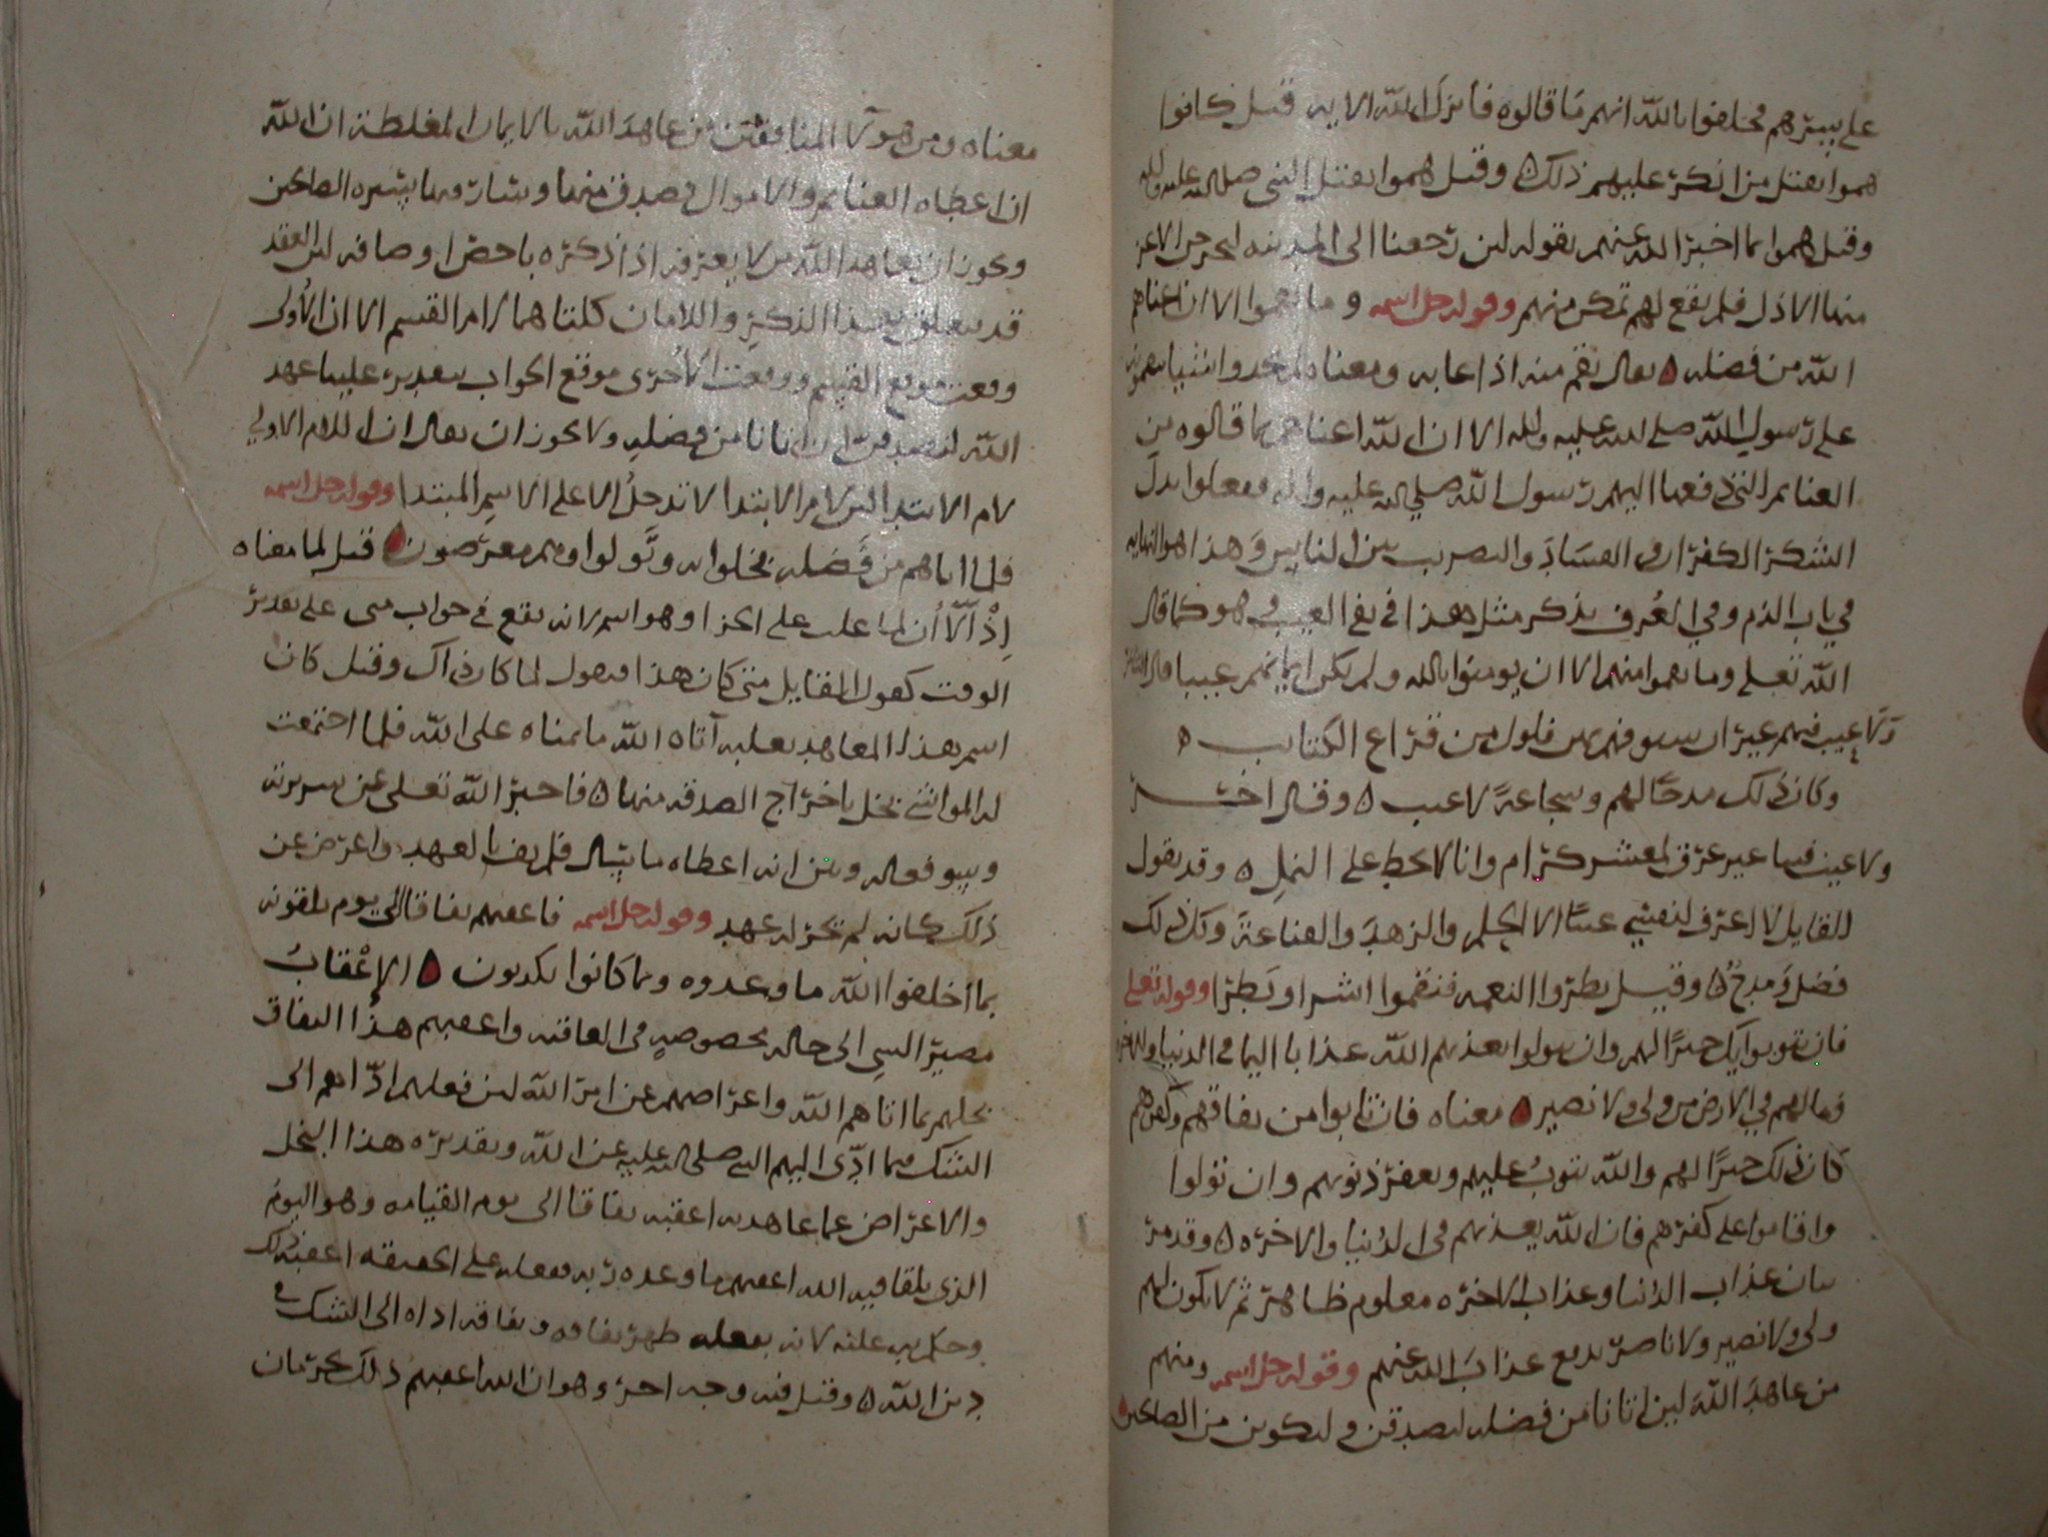 على بيرهم فحلفوا بالله انهم ما قالوه فانزل الله الايه وقيل كانوا
هموا بقتل من انكر عليهم ذلك ه وقيل هموا بقتل النبى صلى الله عليه واله
وقيل هموا بما اخبر الله عنهم بقوله لين رجعنا الى المدينه ليخرجن الاعز
منها الاذل فلم يقع لهم تمكن منهم وقوله جل اسمه وما نقموا الا ان اغناهم
الله من فضله ه يقال نقم منه اذا عابه ومعناه لم يجدوا شيا ينقمونه
على رسول الله صلى الله عليه واله الا ان الله اغناهم بما قالوه من
الغنايم التى دفعها اليهم رسول الله صلى الله عليه واله فجعلوا بدل
الشكر الكفر او الفساد والتضريب بين الناس وهذا هو النهايه
في باب الذم وفي العُرف يذكر مثل هذا فى نفى العيب وهو كما قال
الله تعلى وما نقموا منهم الا ان يومنوا بالله ولم يكن ايمانهم عيبا قال الشاعر
ولا عيب فيهم غير ان سيوفهم بهن فلول من قراع الكتايب ه
وكان ذلك مدحًا لهم وشجاعةً لا عيب ه وقال اخر
ولا عيب فينا غير عرق لمعشر كرام وانا لا نحط على النمل ه وقد يقول
القايل لا اعرف لنفسي عيبًا الا الحلم والزهد والقناعة وكل ذلك
فضل ومدح ه وقيل بطروا النعمه فنقموا اشرا وبطرا وقوله تعلى
فان يتوبوا يك خيرًا لهم وان يتولوا يعذبهم الله عذابا اليما فى الدنيا والاخره
وما لهم في الارض من ولى ولا نصير ه معناه فان تابوا من نفاقهم وكفرهم
كان ذلك خيرًا لهم والله يتوبُ عليهم ويغفر ذنوبهم وان تولوا
واقاموا على كفرهم فان الله يعذبهم فى الدنيا والاخره ه وقد مر
بيان عذاب الدنيا وعذاب الاخره معلوم ظاهر ثم لا يكون لهم
ولى ولا نصير ولا ناصر يدفع عذاب الله عنهم وقوله جل اسمه ومنهم
من عاهد الله لين اتانا من فضله لنصدقن ولنكونن من الصالحين ه
معناه ومن هولآ المنافقين من عاهد الله بالايمان المغلظة ان الله
ان اعطاه الغنايم والاموال تصدق منها وسار فيها بسيره الصالحين
ويجوز ان يعاهد الله من لا يعرفه اذا ذكره باحضار وصافه لان العقد
قد يتعلق بهذا الذكرِ واللامان كلتاهما لام القسم الا ان الأولى
وقعت موقع القسم ووقعت الاُخرى موقع الجواب بتقديره علينا عهد
الله لنصدقن ان اتانا من فضله ولا يجوز ان يقال ان اللام الاولي
لام الابتدا لان لام الابتدا لا تدخلُ الا على الاسمِ المبتدا وقوله جل اسمه
فلما اتاهم من فَضله بخلوا به وتَّولوا وهم معرضون ه قيل لما معناه
إذْ الّا أن لما غلب على الجزا وهو اسم لانه يقع فى جواب متى على تقدير
الوقت كقول القايل متى كان هذا فيقول لما كان ذاك وقيل كان
اسم هذا المعاهد ثعلبه آتاه الله ما تمناه على الله فلما اجتمعت
له المواشى بخل باخرآج الصدقه منها ه فاخبر الله تعلى عن سريرته
وسو فعاله وبين انه اعطاه ما يسال فلم يف بالعهد واعرض عن
ذلك كانه لم يجر له عهد وقوله جل اسمه فاعقبهم نفاقا الى يوم يلقونه
بما اخلفوا الله ما وعدوه وبما كانوا يكذبون ه الإعْقابُ
مصير الشى الى حاله مخصوصه فى العاقبه واعقبهم هذا النفاق
بخلهم بما اتاهم الله واعراضهم عن امر الله لان فعلهم ادّاهم الى
الشك فيما ادّى اليهم النبى صلى الله عليه عن الله وتقديره هذا البخل
والاعراض عما عاهد به اعقبه نفاقا الى يوم القيامه وهو اليوم
الذى يلقا فيه الله اعقبهم ما وعده ربه ففعله على الحقيقه اعقبه ذلك
وحكم به عليه لانه بفعله ظهر نفاقه ونفاقه اداه الى الشك فى
دين الله ه وقيل فيه وجه اخر وهو ان الله اعقبهم ذلك بحرمان